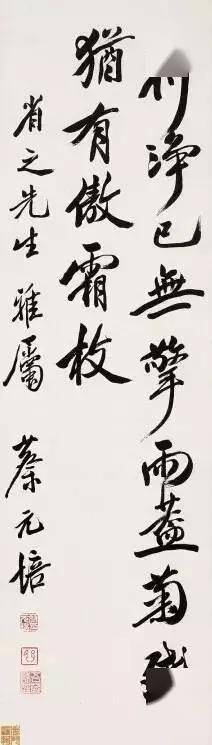 淨已無擎雨蓋菊
猶有傲霜枝
省之先生雅屬 蔡元培